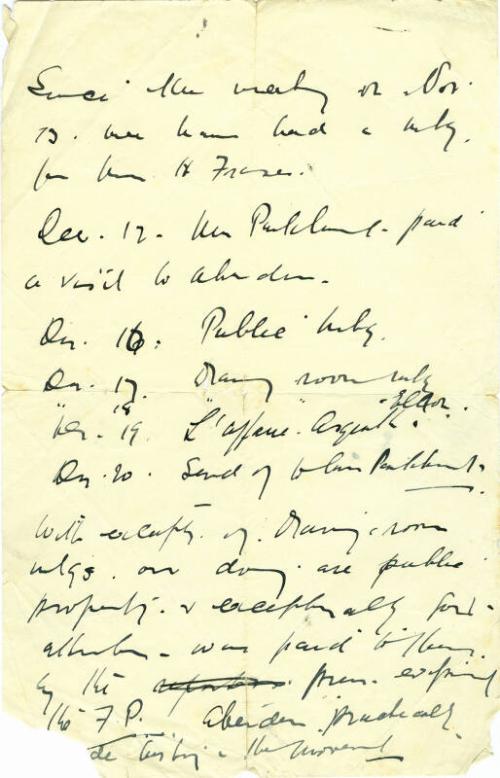 Since the meeting on Nov.
13. we have had a mtg.
for Mrs H Fraser.
Dec. 12 - Mrs Pankhurst - paid
a visit to Aberdeen.
Dec. 16: Public Mtg.
Dec. 17. Drawing room mtg
" 19. "L'affaire" Asquith.
Dec. 20. Send off to Mrs Pankhurst.
With except. of Drawing-room
mtgs. our doings are public
property & exceptionally good
attention - was paid to them
by the press. excepting
the F.P. Aberdeen practically
the movement